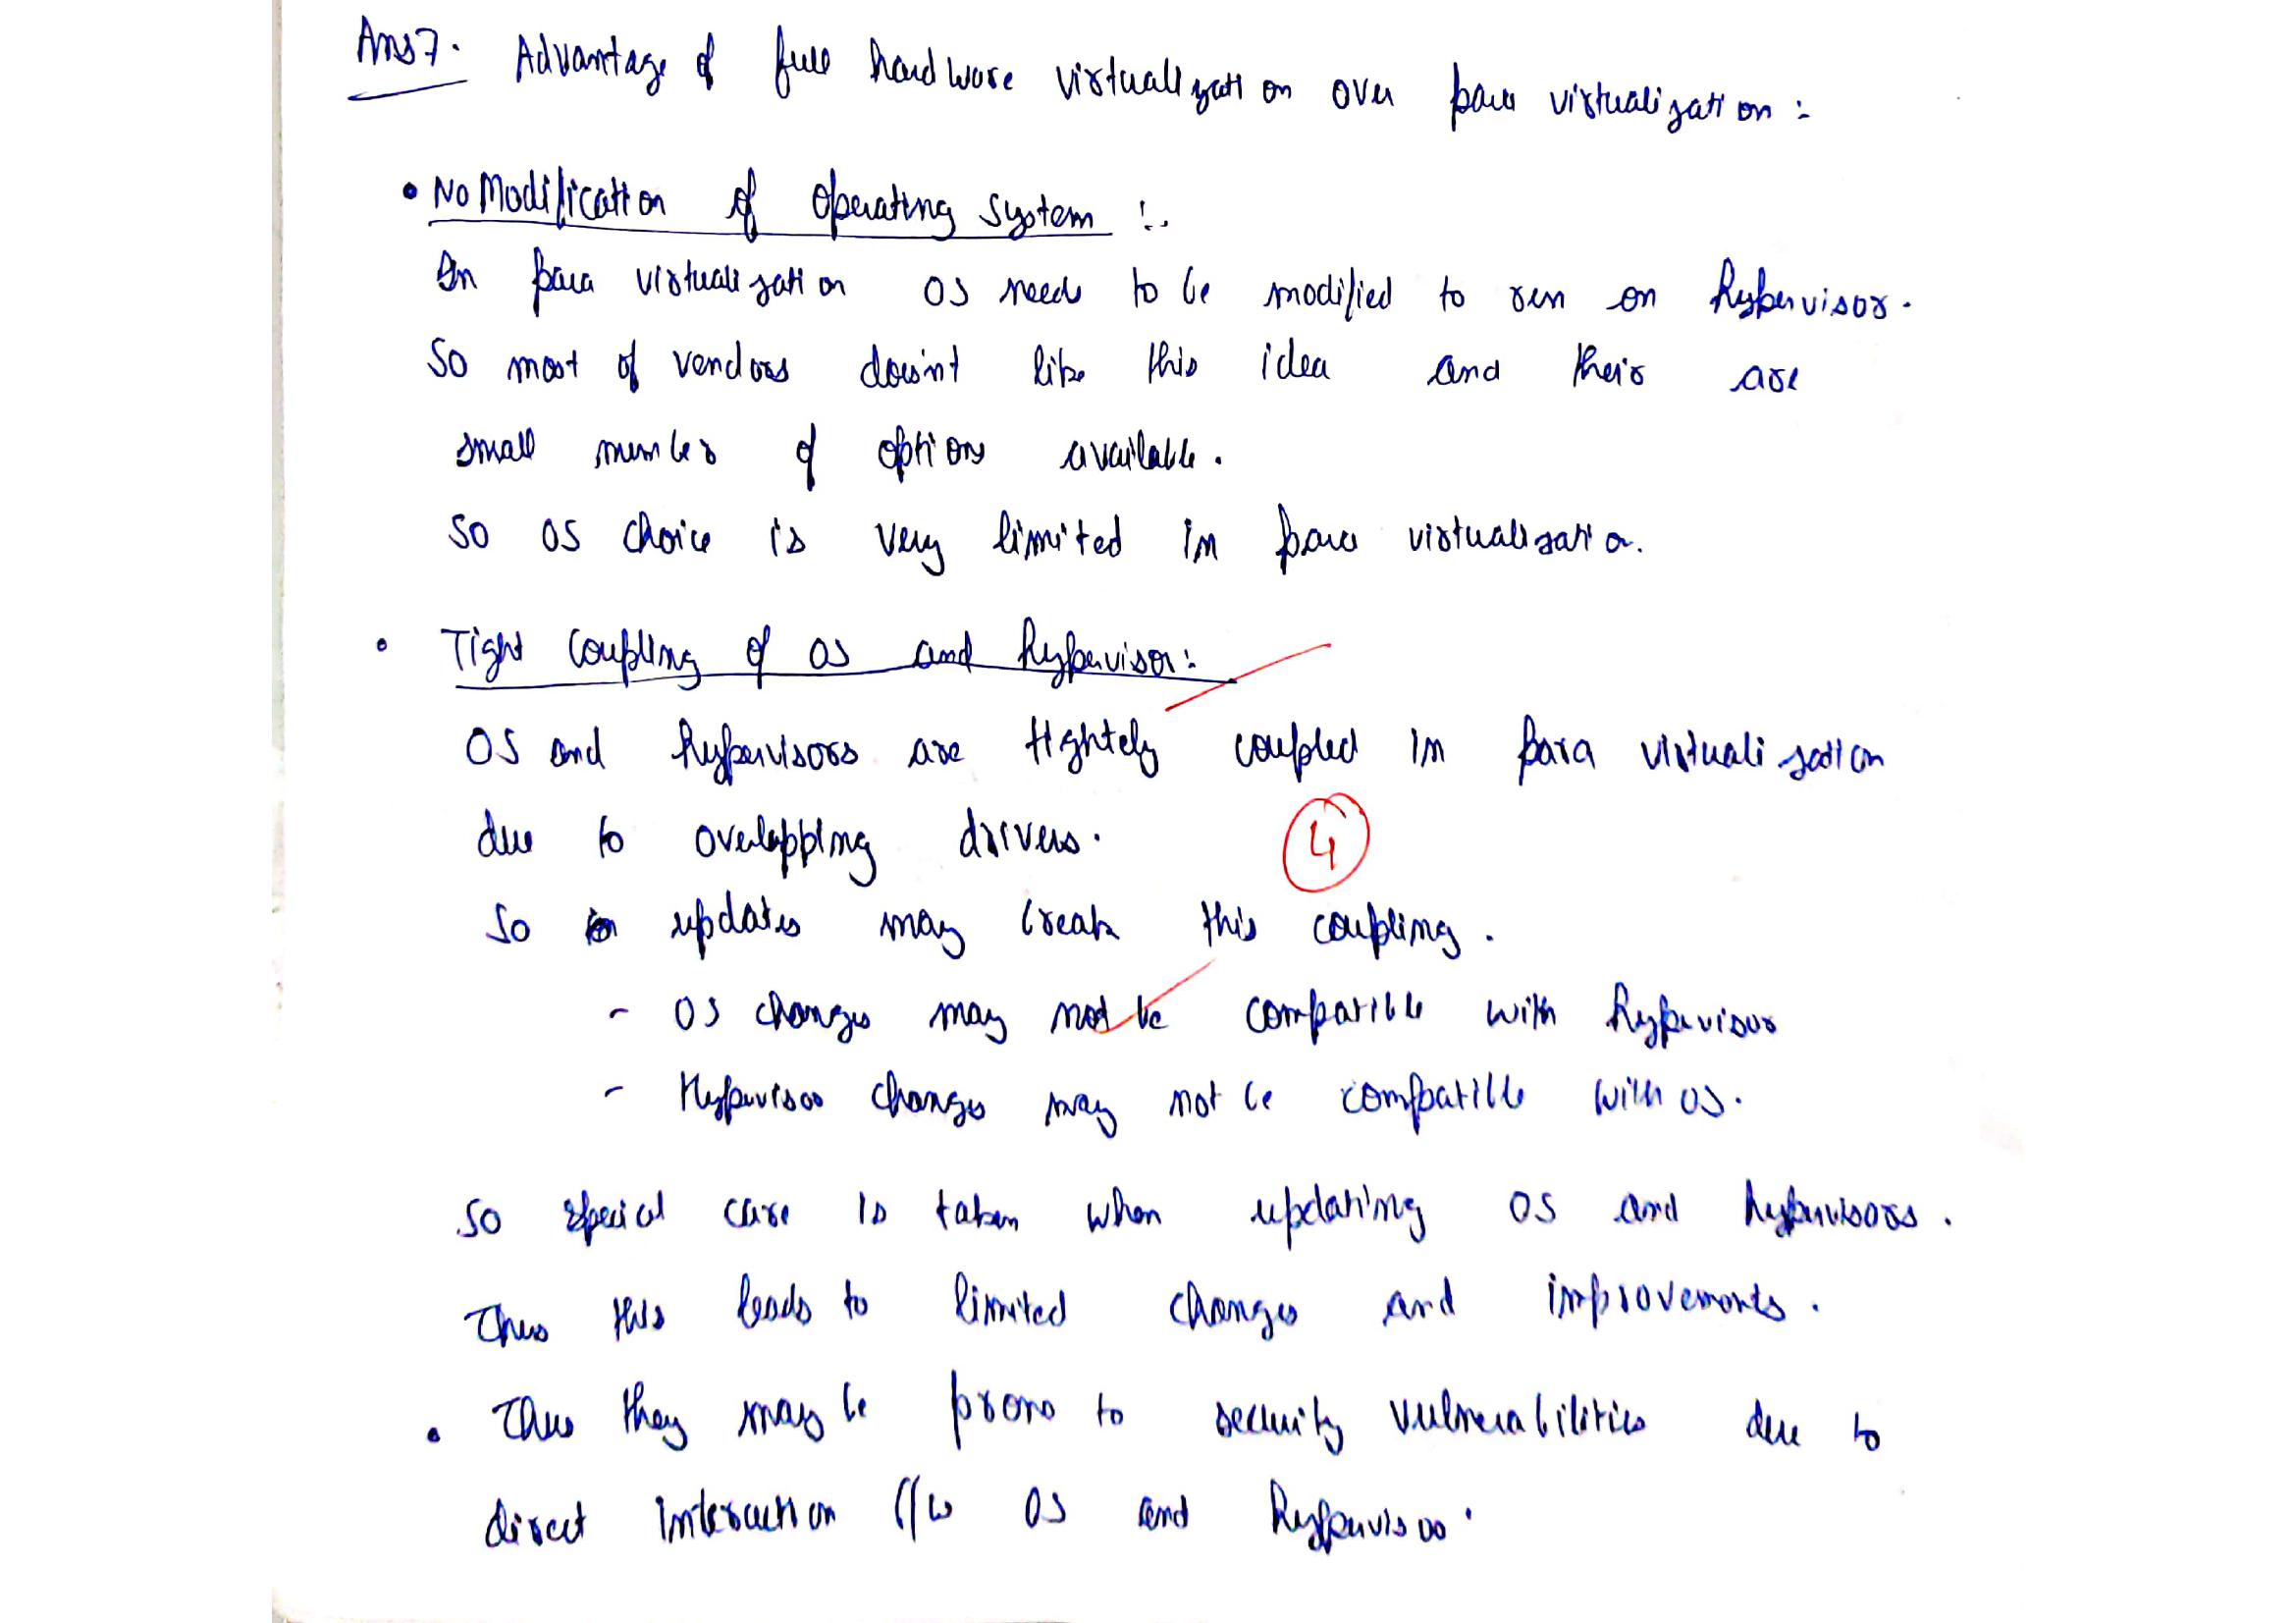 Ans7. Advantage of full hardware virtualization over para virtualization :
• No Modification of operating system :-
In para virtualization OS needs to be modified to run on hypervisor.
So most of vendors doesn't like this idea and their are
small number of options available.
So OS choice is very limited in para virtualization.
• Tight Coupling of OS and hypervisor:
OS and hypervisors are tightely coupled in para virtualization
due to overlapping drivers.
4
So updates may break this coupling.
- OS changes may not be compatible with hypervisor
- Hypervisor changes may not be compatible with OS.
So special care is taken when updating OS and hypervisors.
Thus this leads to limited changes and improvements.
• Thus they may be prone to security vulnerabilities due to
direct interaction b/w OS and hypervisor.